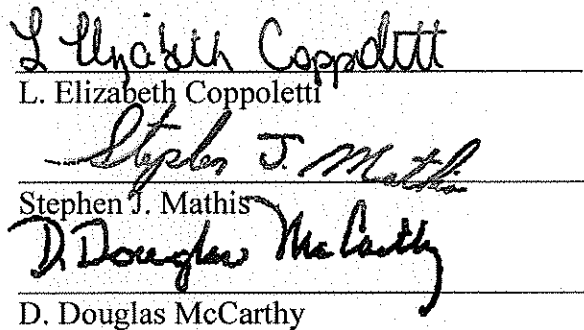 L Elizabeth Coppoletti
L. Elizabeth Coppoletti
Stephen J. Mathis
Stephen J. Mathis
D. Douglas McCarthy
D. Douglas McCarthy